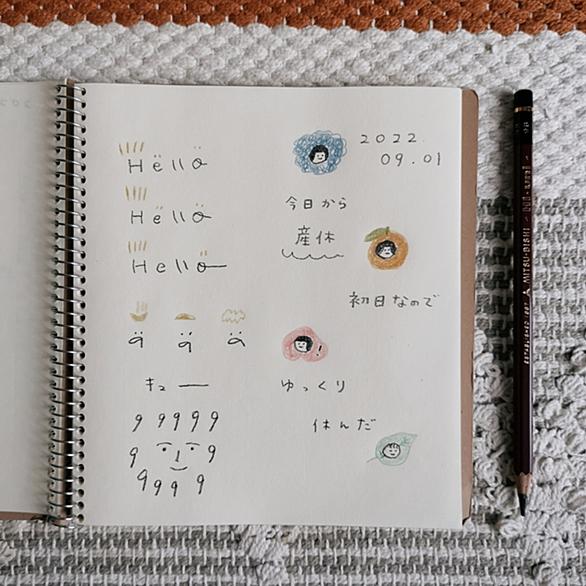 Hëllö
Hëllö
Hëllö
2022.
09.01
今日から
産休
初日なので
ゆっくり
休んだ
キュー
9 9 9 9 9
9 9
9 9 9 9
MITSU-BISHI